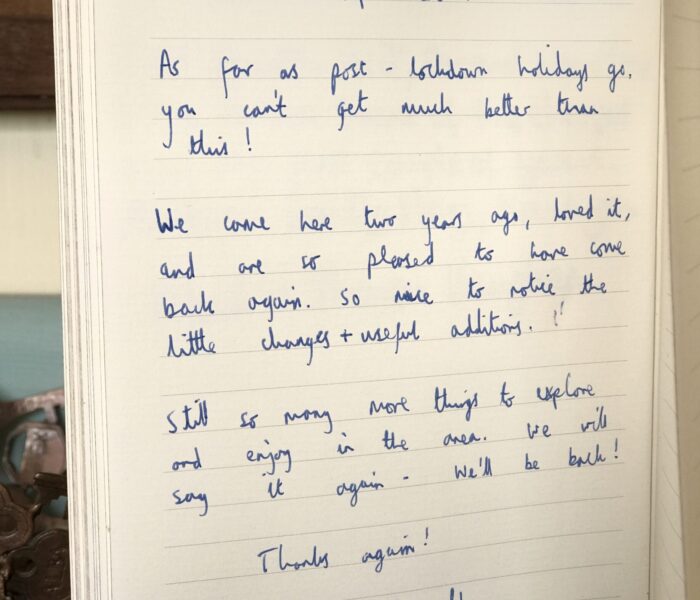 As far as post - lockdown holidays go,
you can't get much better than
this!
We came here two years ago, loved it,
and are so pleased to have come
back again. So nice to notice the
little changes + useful additions.
Still so many more things to explore
and enjoy in the area. We will
say it again - we'll be back!
Thanks again!